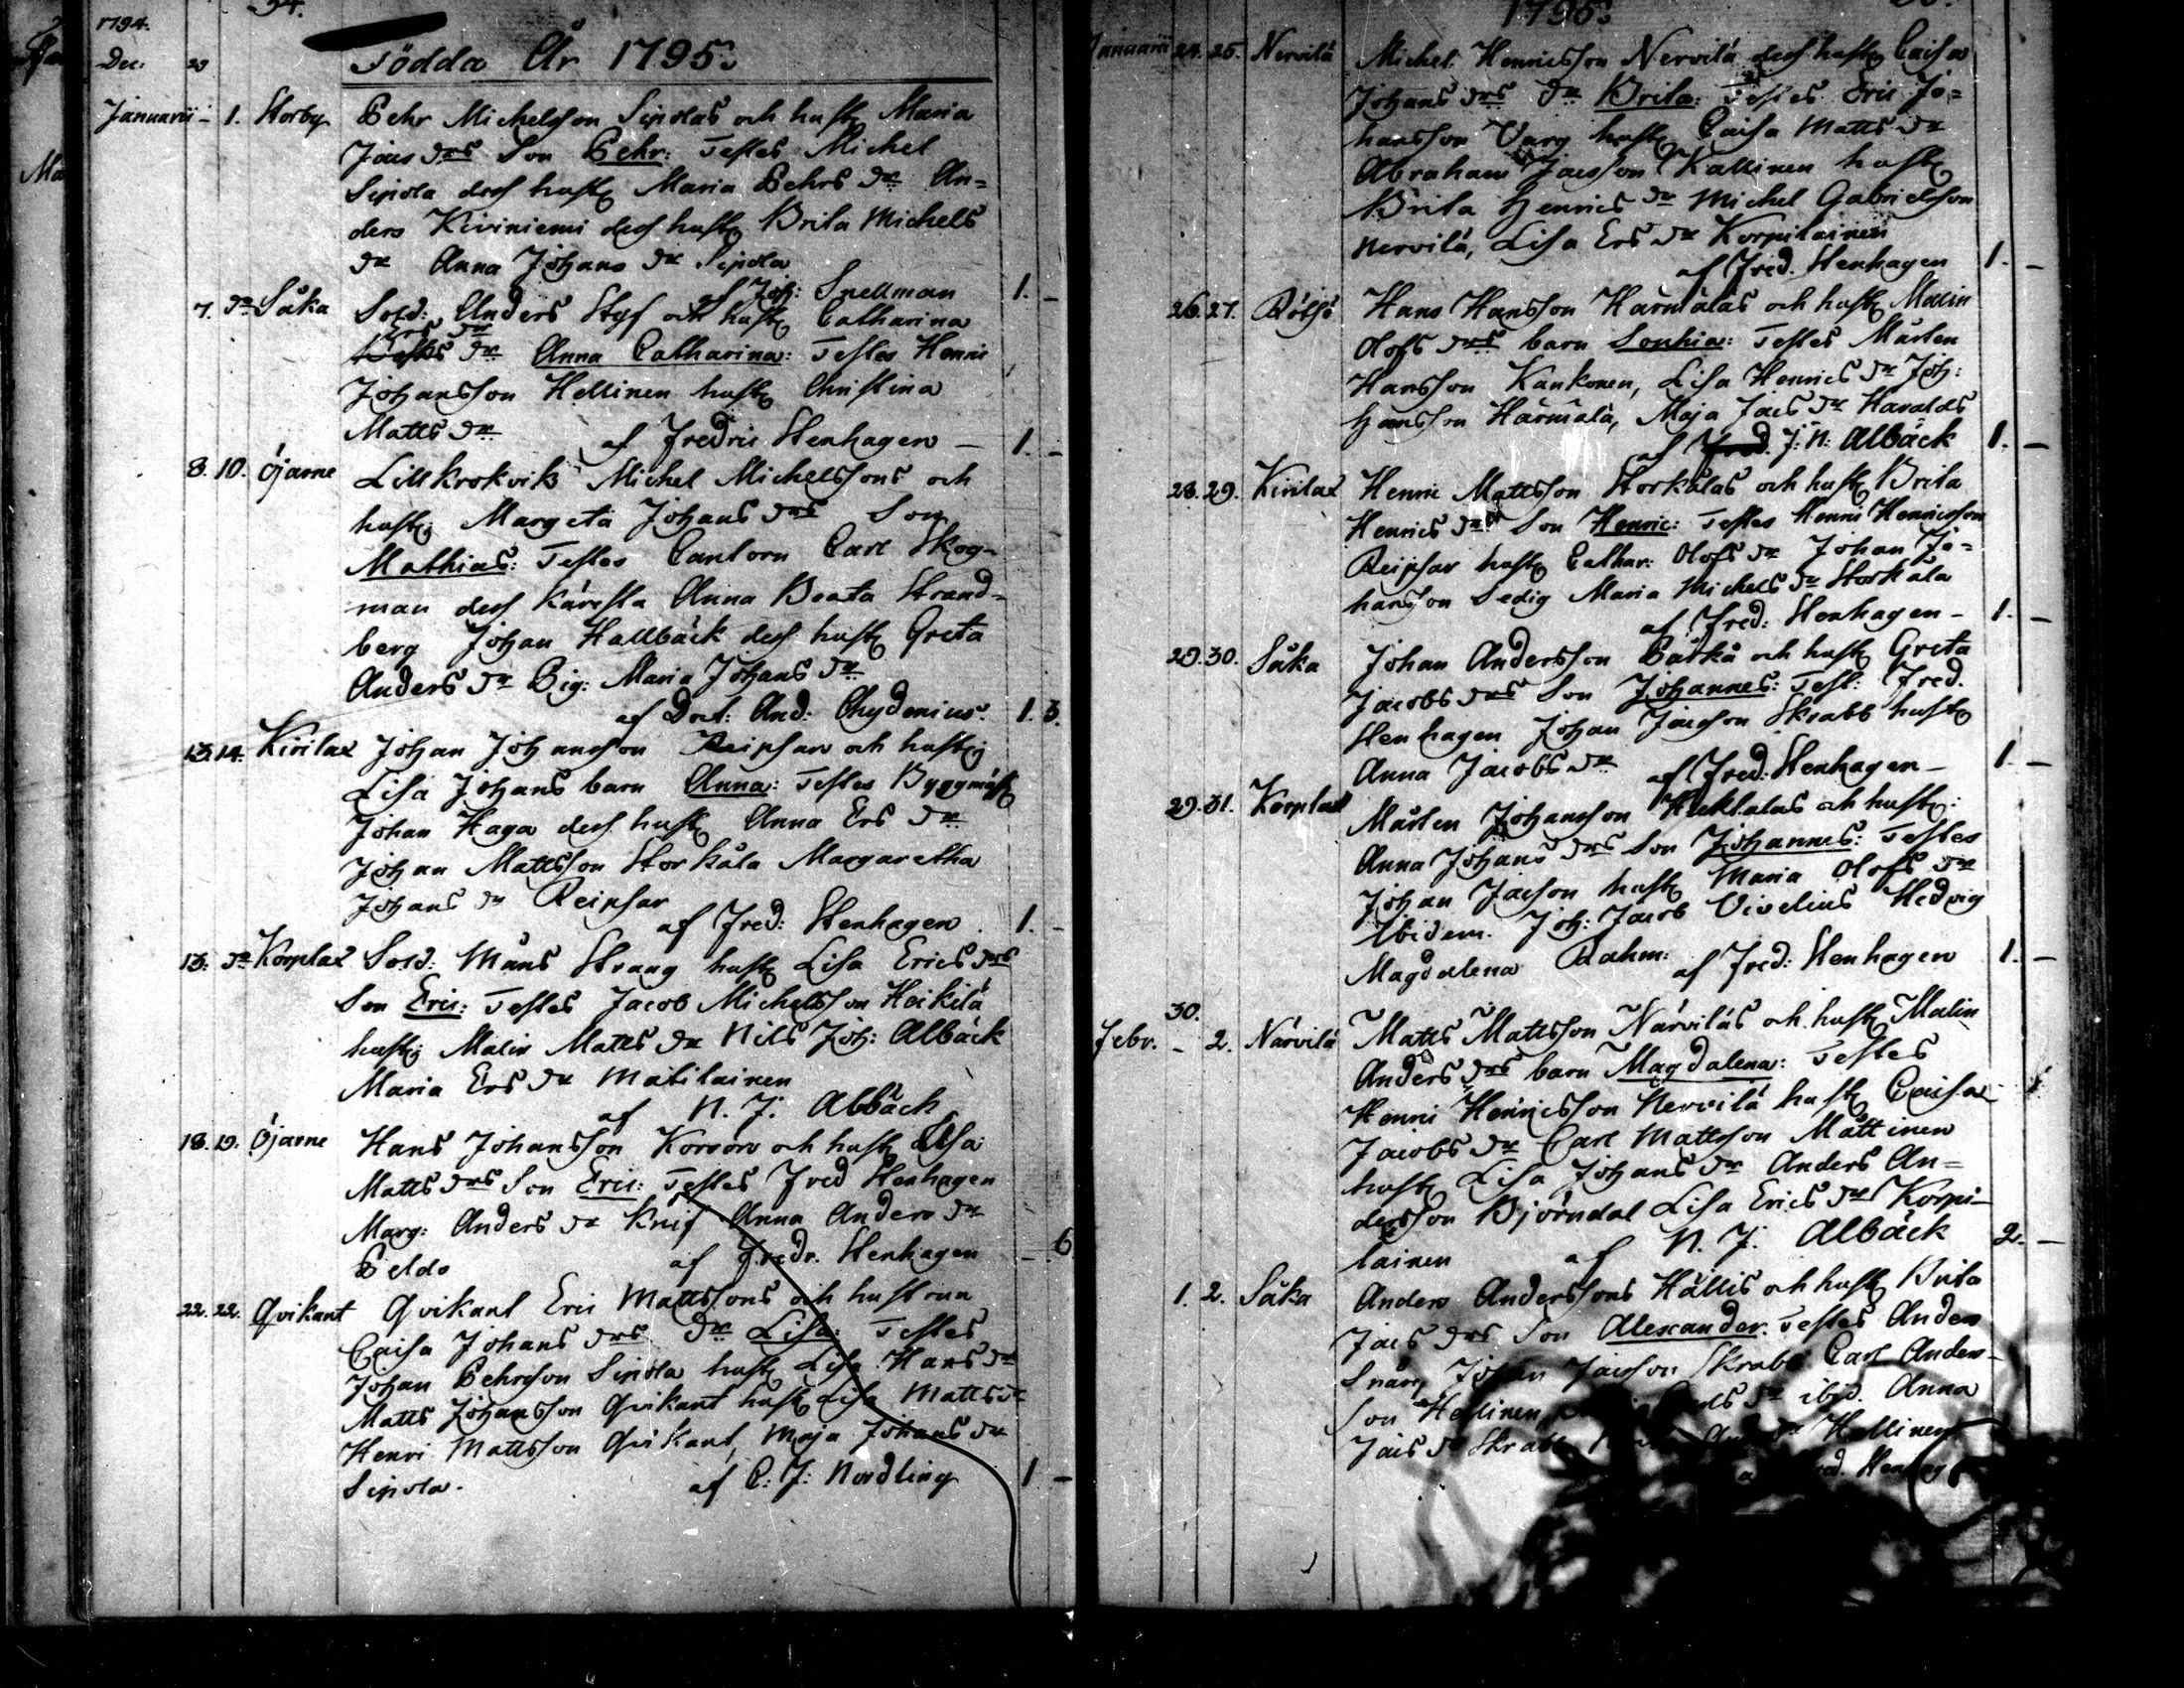 34.
1794.
Dec: 29
Födda År 1795:
Januarii – 1. Storby Pehr Michelsson Sipolas och hust: Maria
Jacs drs Son Pehr: Testes Michel
Sipola dess hust: Maria Pehrs dr An=
ders Kiviniemi dess hust: Brita Michels
dr Anna Johans dr Sipola
af Joh: Snellman 1. –
7. do Såka Sold: Anders Styf och hust: Catharina
Ers dr
dr Anna Catharina: Testes Henric
Johansson Hellinen hust: Christina
Matts dr af Fredric Stenhagen – 1. –
8. 10. Öjarne Lillkrokvik Michel Michelssons och
hust: Margeta Johans drs Son
Mathias: Testes Cantorn Carl Skog-
man dess käresta Anna Beata Strand-
berg Johan Hallbäck dess hust: Greta
Anders dr Pig: Maria Johans dr
af Doct: And: Chydenius. 1. 3.
13. 14. Kirilax Johan Johansson Reipsar och hust:
Lisa Johans barn Anna: Testes Byggmäst:
Johan Haga dess hust: Anna Ers dr
Johan Mattsson Storkåla Margaretha
Johans dr Reipsar
af Fred: Stenhagen 1. –
13. do Korplax Sold: Måns Strang hust: Lisa Erics drs
Son Eric: Testes Jacob Michelsson Heikilä
hust: Malin Matts dr Nils Joh: Albäck
Maria Ers dr Matilainen
af N. J. Albäck
18. 19. Öjarne Hans Johansson Korsön och hust: Lisa
Matts drs Son Eric: Testes Fred Stenhagen
Marg: Anders dr Knif Anna Anders dr
Peldo af Fredr. Stenhagen – 6
22. 22. Qvikant Qvikant Eric Mattssons och hustrun
Caisa Johans drs dr Lisa: Testes
Johan Pehrsson Sipola hust: Lisa Hans dr
Matts Johansson Qvikant hust: Lisa Matts dr
Henri Mattsson Qvikant, Maja Johans dr
Sipola. af C: J: Nordling 1 –
1795:
Januarii 24. 25. Nervilä Michel Henricsson Nervilä dess hust: Caisa
Johans drs dr Brita: Testes Eric Jo=
hansson Varg hust: Caisa Matts dr
Abraham Jacsson Kallinen hust:
Brita Henrics dr Michel Gabrielsson
Nervilä, Lisa Ers dr Korpilainen
af Fred. Stenhagen 1. –
26. 27. Rötsö Hans Hansson Harmälas och hust: Malin
Olofs drs barn Sophia: Testes Mårten
Hansson Kankonen, Lisa Henrics dr Joh:
Hansson Härmälä, Maja Jacs dr Haralds
af Fred. J: N: Albäck 1. –
28. 29. Kirilax Henric Mattsson Storkålas och hust: Brita
Henrics drs Son Henric: Testes Henric Henricsson
Reipsar hust: Cathar: Olofs dr Johan Jo=
hansson Ledig Maria Michels dr Storkåla
af Fred: Stenhagen – 1. –
29. 30. Såka Johan Andersson Påtkå och hust: Greta
Jacobs drs Son Johannes: Test: Fred.
Stenhagen Johan Jacsson Skrabb hust:
Anna Jacobs dr af Fred: Stenhagen – 1 –
29. 31. Korplax Mårten Johansson och hust:
Anna Johans drs Son Johannes: Testes
Johan Jacsson hust: Maria Olofs dr
Ibidem. Joh: Jacob Vivelius Hedvig
Magdalena Rahm: af Fred: Stenhagen 1. –
30.
Febr. – 2. Närvilä Matts Mattsson Närviläs och hust: Malin
Anders drs barn Magdalena: Testes
Henric Henricsson Nervilä hust: Caisa
Jacobs dr Carl Mattsson Mattinen
hust: Lisa Johans dr Anders An=
dersson Björndal Lisa Erics dr Korpi-
lainen af N. J. Albäck 2. –
1. 2. Såka Anders Anderssons Hällis och hust: Brita
Jacs drs Son Alexander: Testes Anders
Snåre, Johan Jacsson Skrabb Carl Anders-
Son Hellinen, dr ibid. Anna
Jacs dr Skrabb dr Hellinen